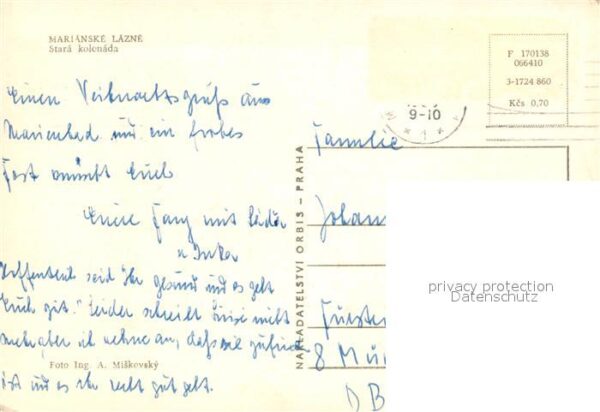 MARIÁNSKÉ LÁZNĚ
Stará kolonáda
F 170138
066410
3-1724 860
Kčs 0,70
9-10
Einen Weihnachtsgruß aus
Marienbad und ein frohes
Fest wünscht Euch
Eure Fany mit Láďa
u Inka
Hoffentlich seid Ihr gesund und es geht
Euch gut. Leider schreibt mir nicht
mehr aber ich nehme an, dass sie zufrieden
ist und es ihr recht gut geht.
Foto Ing. A. Miškovský
NAKLADATELSTVÍ ORBIS – PRAHA
Familie
Johann
privacy protection
Datenschutz
Fürsten
8 Mün
DB